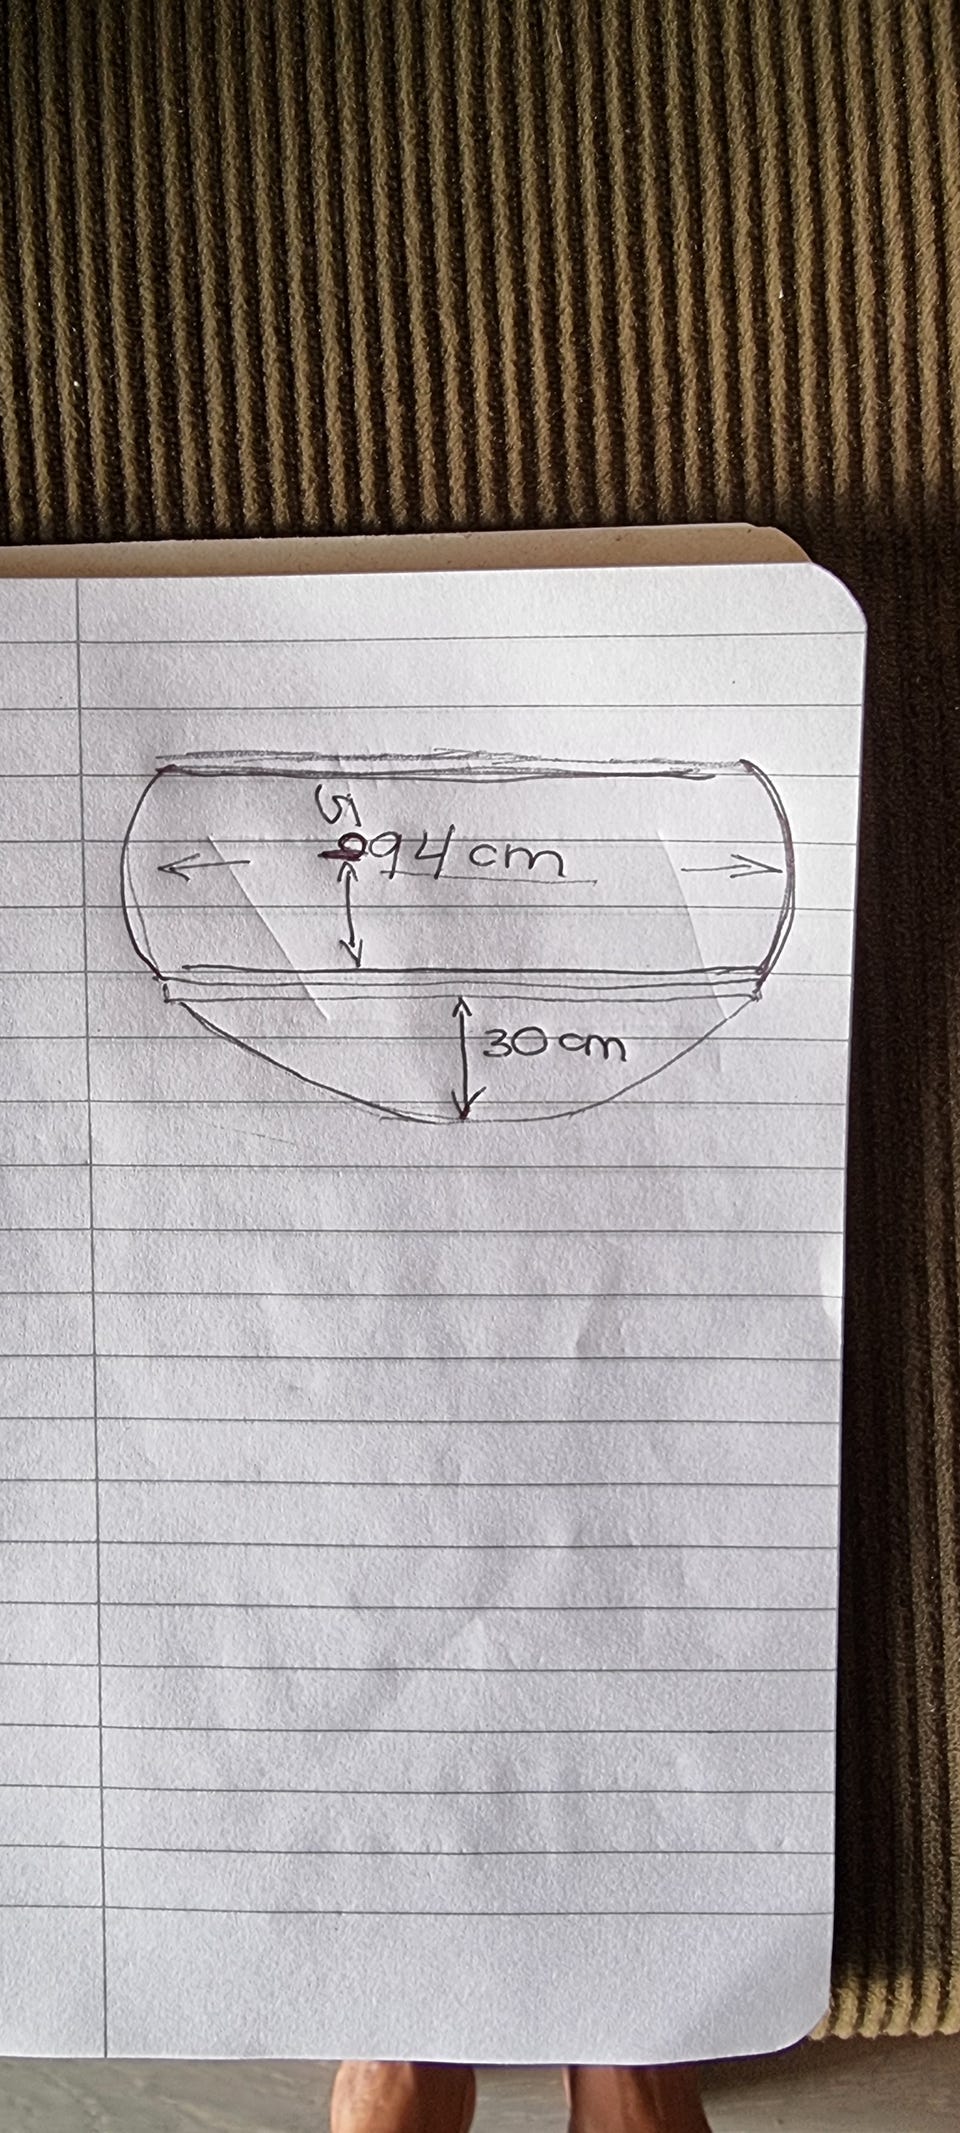 94 cm
30 cm